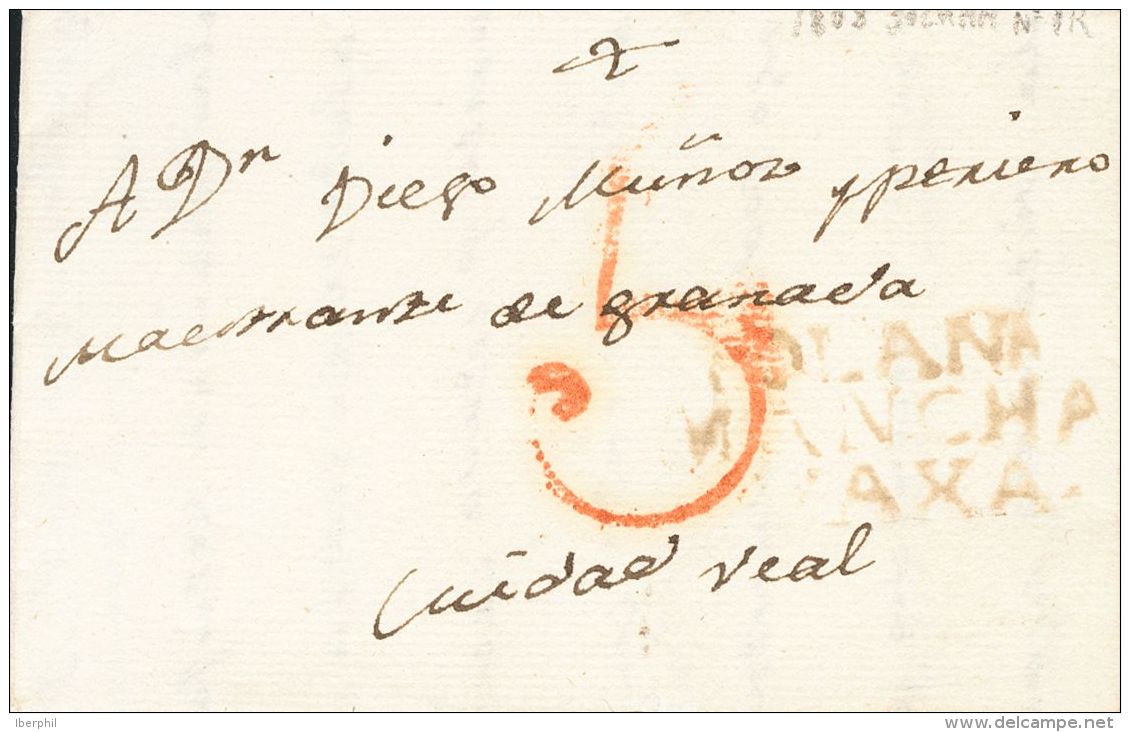 1808 SOLANA Nº 1R
A Dn Diego Muñoz y periero
maestrante de granada
5
SOLANA
MANCHA
BAXA.
Ciudad real
Iberphil
www.delcampe.net